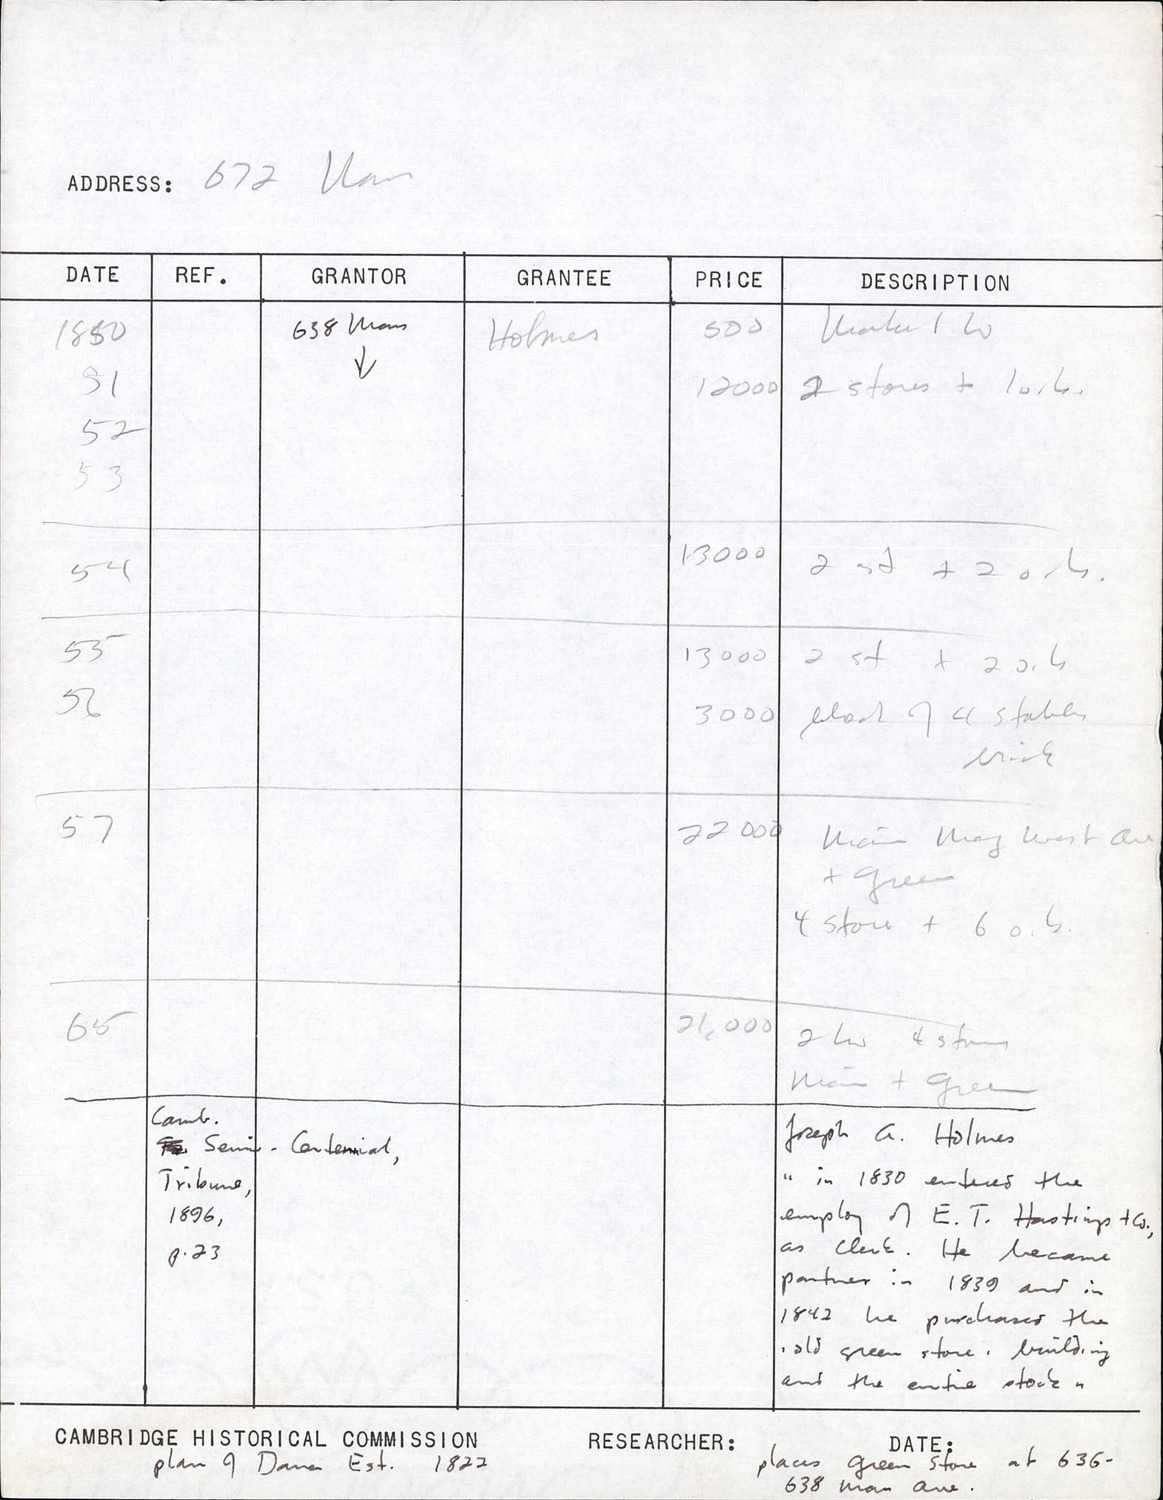 ADDRESS: 672 Mass
DATE REF. GRANTOR GRANTEE PRICE DESCRIPTION
1850 638 Mass Holmes 500 Market ho
↓
51 12000 2 stores + 1 o.b.
52
53
54 13000 2 st + 2 o.b.
55 13000 2 st + 2 o.b
56 3000 block of 4 stables
brick
57 22000 Main Mag west ave
+ Green
4 store + 6 o.b.
65 21,000 2 ho 4 stores
Main + Green
Camb.
Semi-Centennial,
Tribune,
1896,
p.23
Joseph A. Holmes
" in 1830 entered the
employ of E. T. Hastings + Co.,
as clerk. He became
partner in 1839 and in
1842 he purchased the
'old green store' building
and the entire stock "
CAMBRIDGE HISTORICAL COMMISSION RESEARCHER: DATE:
plan of Dana Est. 1822 places Green Store at 636-
638 Mass Ave.